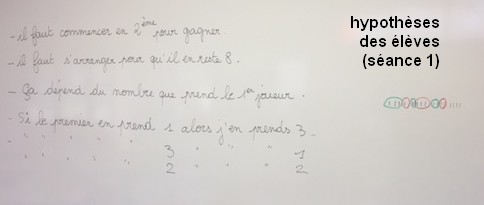 hypothèses
des élèves
(séance 1)
- il faut commencer en 2ème pour gagner.
- il faut s'arranger pour qu'il en reste 8.
- Ça dépend du nombre que prend le 1er joueur.
- Si le premier en prend 1 alors j'en prends 3.
- " " " " 3 " " " 1
- " " " " 2 " " " 2